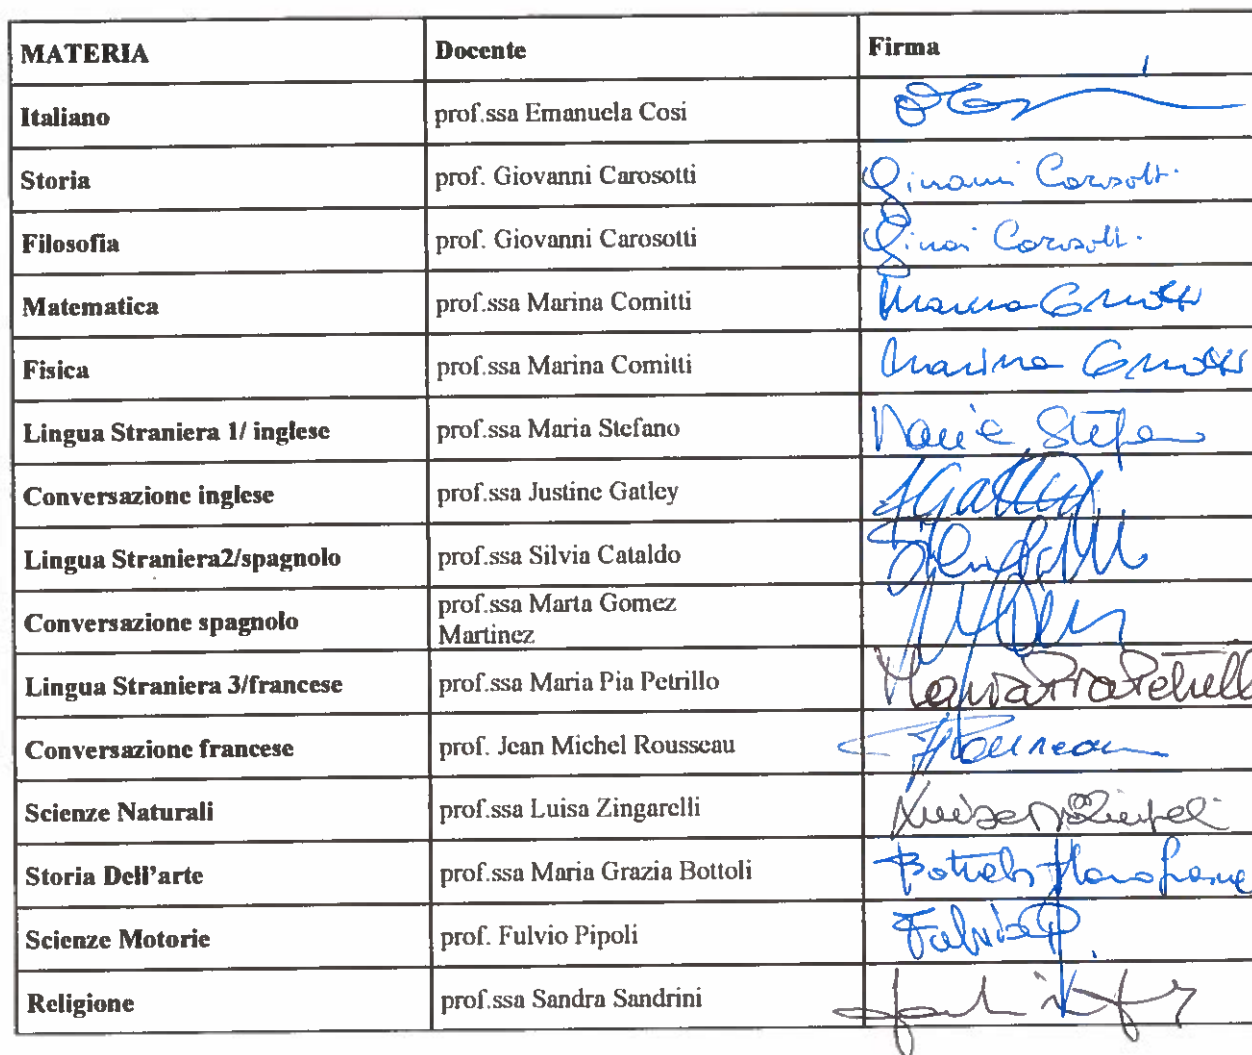 MATERIA Docente Firma
Italiano prof.ssa Emanuela Cosi
Storia prof. Giovanni Carosotti
Filosofia prof. Giovanni Carosotti
Matematica prof.ssa Marina Comitti
Fisica prof.ssa Marina Comitti Marina
Lingua Straniera 1/ inglese prof.ssa Maria Stefano Maria Stefano
Conversazione inglese prof.ssa Justine Gatley JGatley
Lingua Straniera2/spagnolo prof.ssa Silvia Cataldo
Conversazione spagnolo prof.ssa Marta Gomez
Martinez
Lingua Straniera 3/francese prof.ssa Maria Pia Petrillo Maria Pia Petrillo
Conversazione francese prof. Jean Michel Rousseau
Scienze Naturali prof.ssa Luisa Zingarelli
Storia Dell'arte prof.ssa Maria Grazia Bottoli
Scienze Motorie prof. Fulvio Pipoli Fulvio P.
Religione prof.ssa Sandra Sandrini